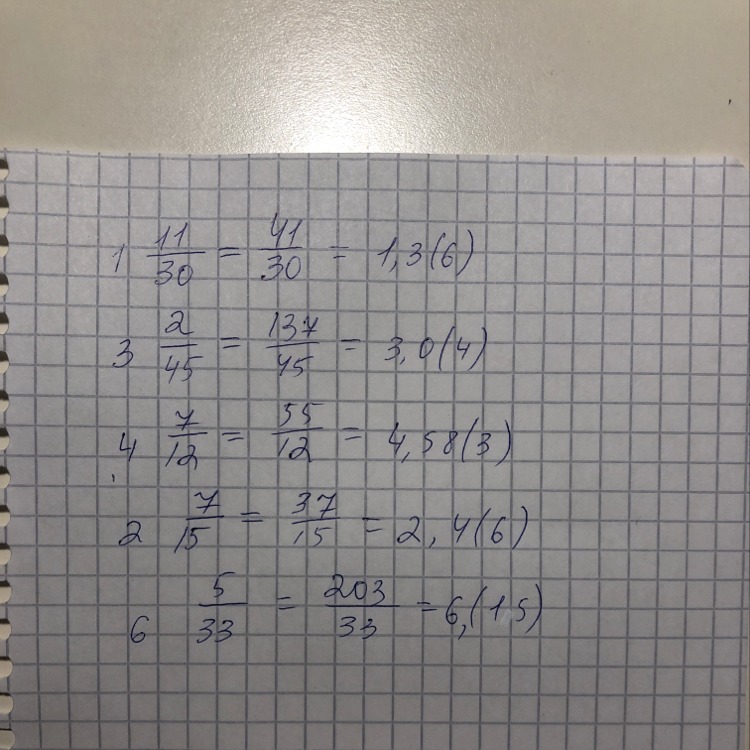 1 11/30 = 41/30 = 1,3(6)
3 2/45 = 137/45 = 3,0(4)
4 7/12 = 55/12 = 4,58(3)
2 7/15 = 37/15 = 2,4(6)
6 5/33 = 203/33 = 6,(15)